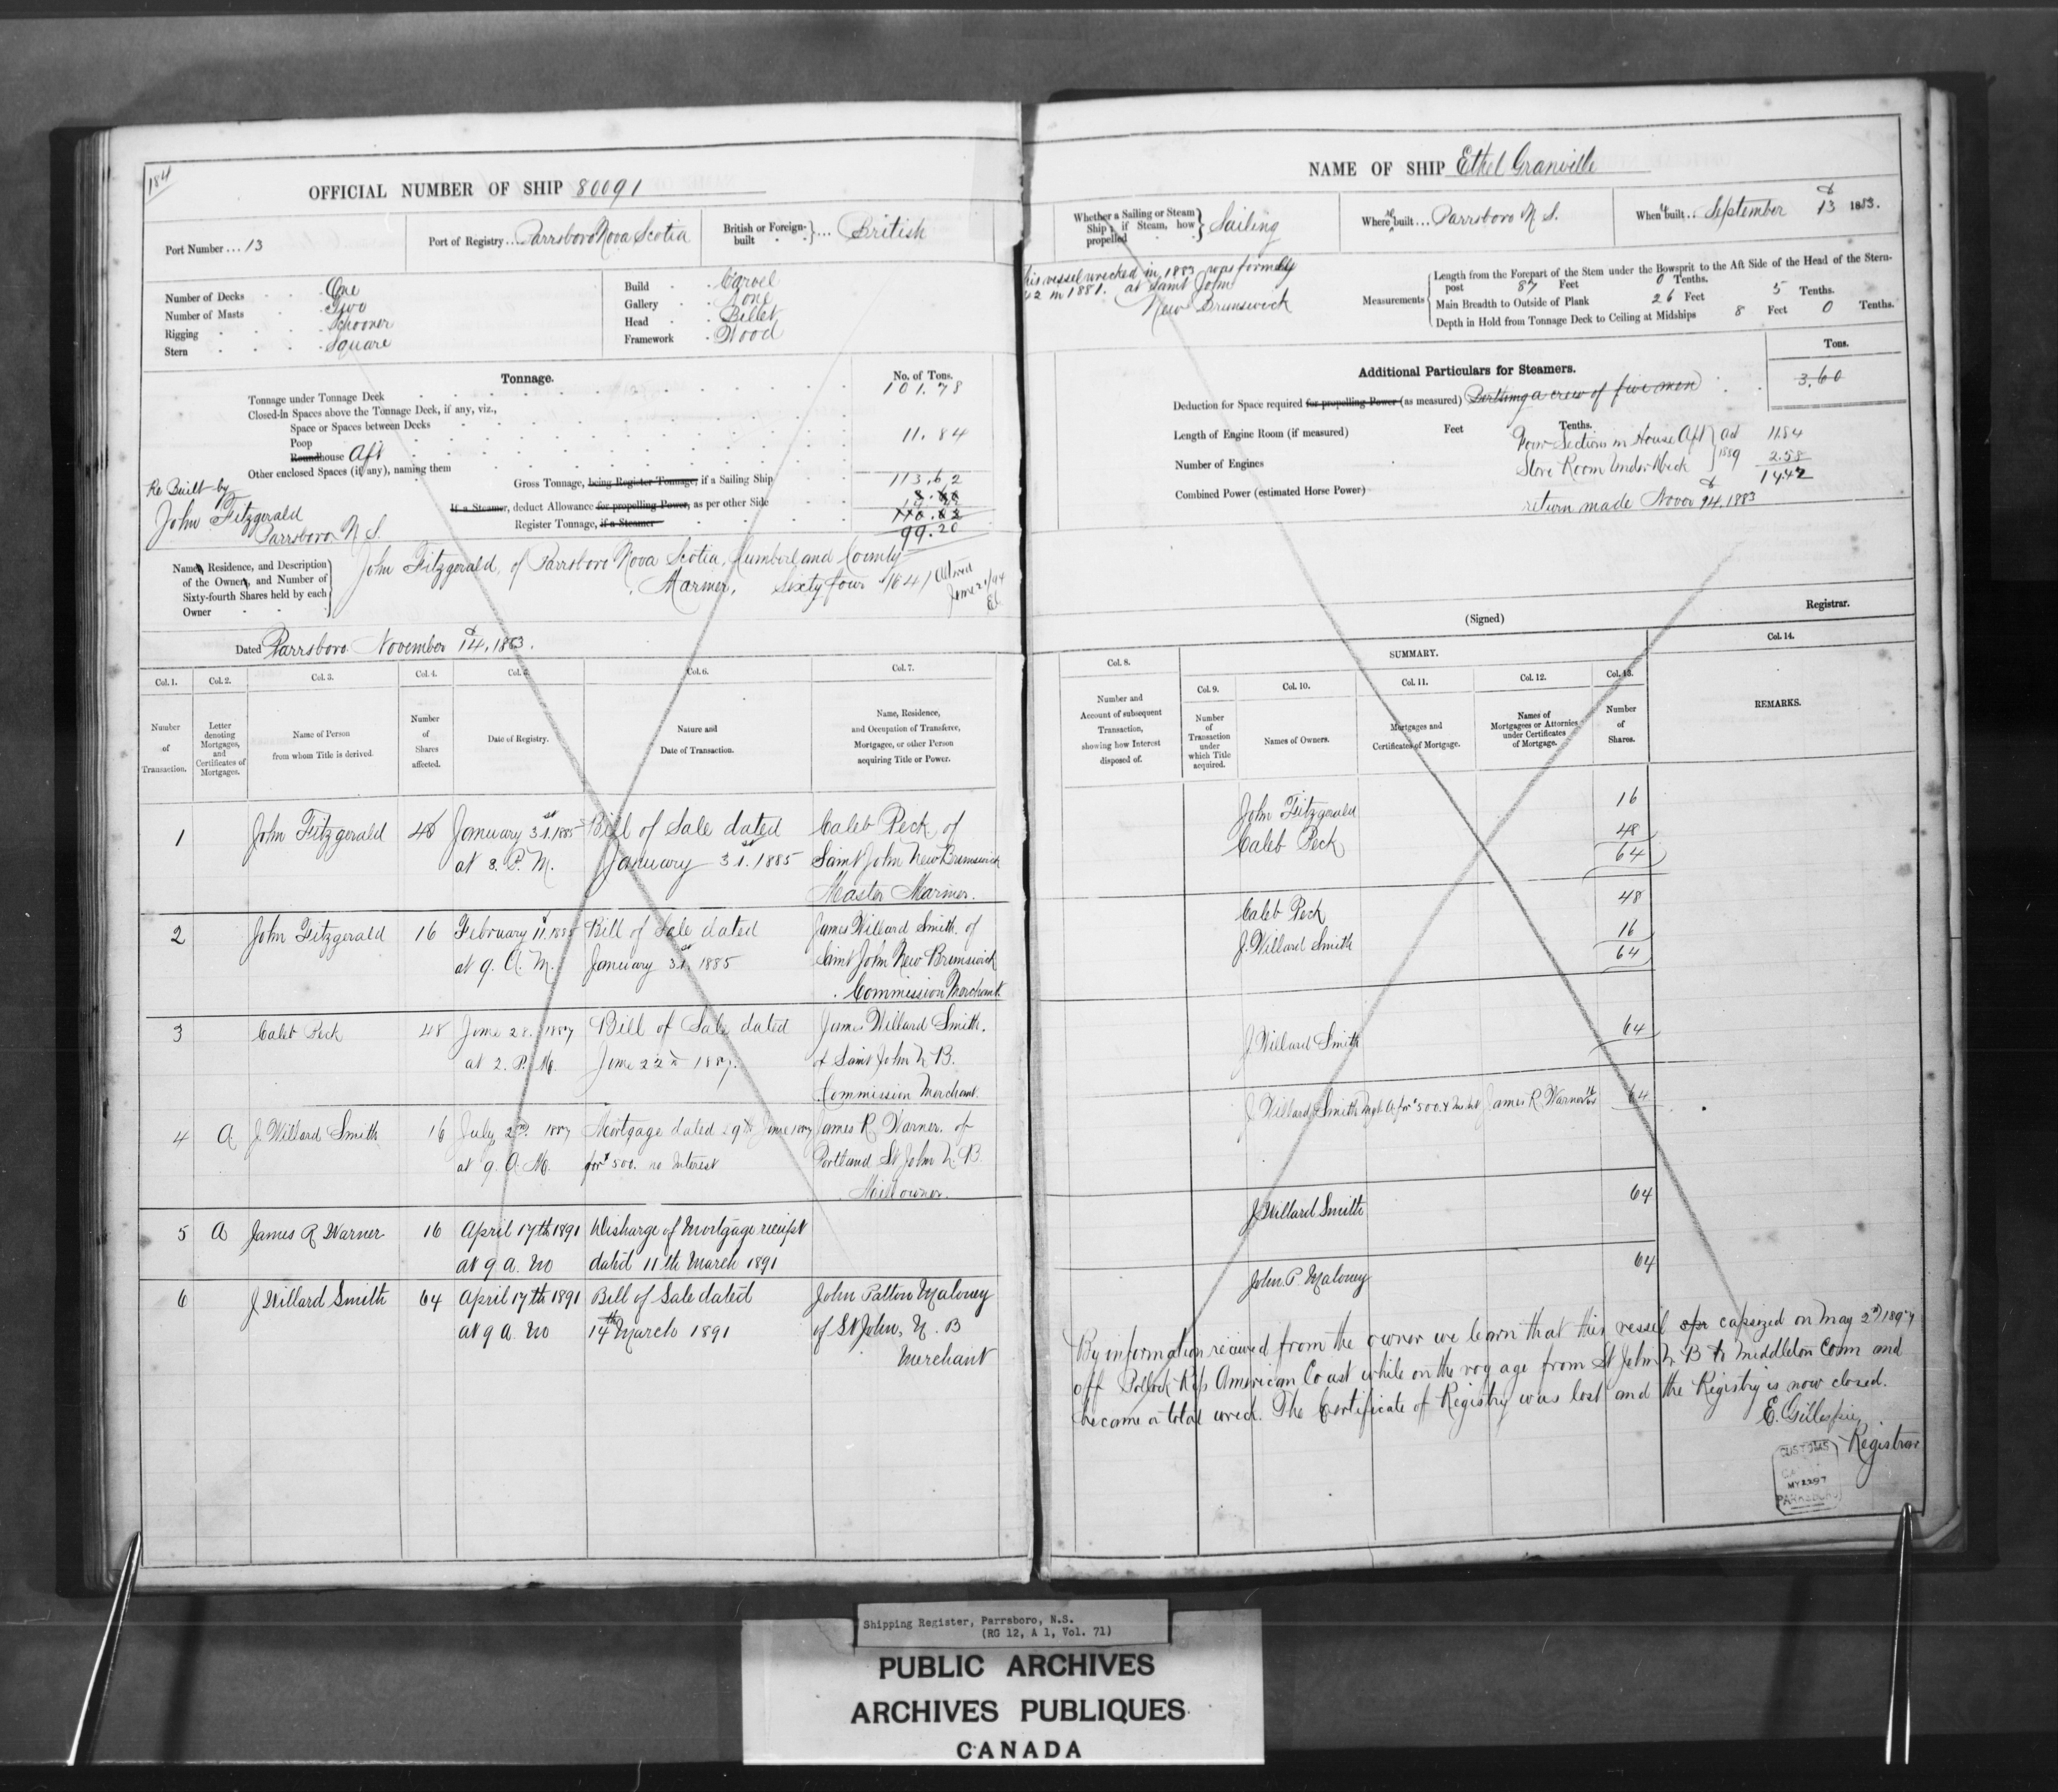 184
OFFICIAL NUMBER OF SHIP 80091
Port Number ... 13
Port of Registry .... Parrsboro Nova Scotia
British or Foreign-built .... British
Number of Decks One
Number of Masts Two
Rigging Schooner
Stern Square
Build Carvel
Gallery None
Head Billet
Framework Wood
Tonnage.
No. of Tons.
Tonnage under Tonnage Deck 101.78
Closed-In Spaces above the Tonnage Deck, if any, viz.,
Space or Spaces between Decks
Poop 11.84
Roundhouse Aft
Other enclosed Spaces (if any), naming them
Gross Tonnage, being Register Tonnage, if a Sailing Ship 113.62
If a Steamer, deduct Allowance for propelling Power, as per other Side
Register Tonnage, if a Steamer 99.20
Re Built by
John Fitzgerald
Parrsboro N S.
Names, Residence, and Description
of the Owners, and Number of
Sixty-fourth Shares held by each
Owner
John Fitzgerald, of Parrsboro Nova Scotia, Cumberland County
Mariner, Sixty four /64/
Dated Parrsboro November 14, 1883.
Col. 1. Col. 2. Col. 3. Col. 4. Col. 5. Col. 6. Col. 7.
Number of Transaction.
Letter denoting Mortgages, and Certificates of Mortgages.
Name of Person from whom Title is derived.
Number of Shares affected.
Date of Registry.
Nature and Date of Transaction.
Name, Residence, and Occupation of Transferee, Mortgagee, or other Person acquiring Title or Power.
1 John Fitzgerald 48 January 31st, 1885 Bill of Sale dated Caleb Peck of
at 3. P. M. January 31st. 1885 Saint John New Brunswick
Master Mariner.
2 John Fitzgerald 16 February 11. 1885 Bill of Sale dated James Willard Smith of
at 9. A. M. January 31st. 1885 Saint John New Brunswick
Commission Merchant.
3 Caleb Peck 48 June 28. 1887 Bill of Sale dated James Willard Smith.
at 2. P. M. June 22nd 1887. of Saint John N. B.
Commission Merchant.
4 A. J. Willard Smith 16 July 2nd. 1887 Mortgage dated 29th June 1887 James R Warner. of
at 9. A. M. for $500. no Interest Portland St John N. B.
Mill owner.
5 A James R Warner 16 April 17th 1891 Discharge of Mortgage receipt
at 9 a. m dated 11th March 1891
6 J. Willard Smith 64 April 17th 1891 Bill of Sale dated John Patton Maloney
at 9 a. m 14th March 1891 of St John, N. B
Merchant
NAME OF SHIP Ethel Granville
Whether a Sailing or Steam Ship; if Steam, how propelled Sailing
Where Re built ... Parrsboro N S.
When built ... September 13 1883.
This vessel wrecked in 1883 was formerly
in 1881. at Saint John
New Brunswick
Measurements
Length from the Forepart of the Stem under the Bowsprit to the Aft Side of the Head of the Stern-
post 87 Feet 0 Tenths.
Main Breadth to Outside of Plank 26 Feet 5 Tenths.
Depth in Hold from Tonnage Deck to Ceiling at Midships 8 Feet 0 Tenths.
Tons.
Additional Particulars for Steamers.
Deduction for Space required for propelling Power (as measured) Berthing a crew of five men 3.60
Length of Engine Room (if measured) Feet Tenths.
Number of Engines
Combined Power (estimated Horse Power)
Four Section in House Aft Act 11.84
Store Room Under Deck 1889 2.58
14.42
return made Novr 14, 1883
(Signed) Registrar.
SUMMARY.
Col. 8. Col. 9. Col. 10. Col. 11. Col. 12. Col. 13. Col. 14.
Number and Account of subsequent Transaction, showing how Interest disposed of.
Number of Transaction under which Title acquired.
Names of Owners.
Mortgages and Certificates of Mortgage.
Names of Mortgagees or Attornies under Certificates of Mortgage.
Number of Shares.
REMARKS.
John Fitzgerald 16
Caleb Peck 48
64
Caleb Peck 48
J. Willard Smith 16
64
J Willard Smith 64
J Willard Smith James R Warner 64
J Willard Smith 64
John P Maloney 64
By information received from the owner we learn that this vessel capsized on May 2nd 1897
off Pollock Rip American Coast while on the voyage from St John N B to Middleton Conn and
became a total wreck. The Certificate of Registry was lost and the Registry is now closed.
E. Gillespie,
Registrar
CUSTOMS
MY 22 97
PARRSBORO
Shipping Register, Parrsboro, N.S.
(RG 12, A 1, Vol. 71)
PUBLIC ARCHIVES
ARCHIVES PUBLIQUES
CANADA